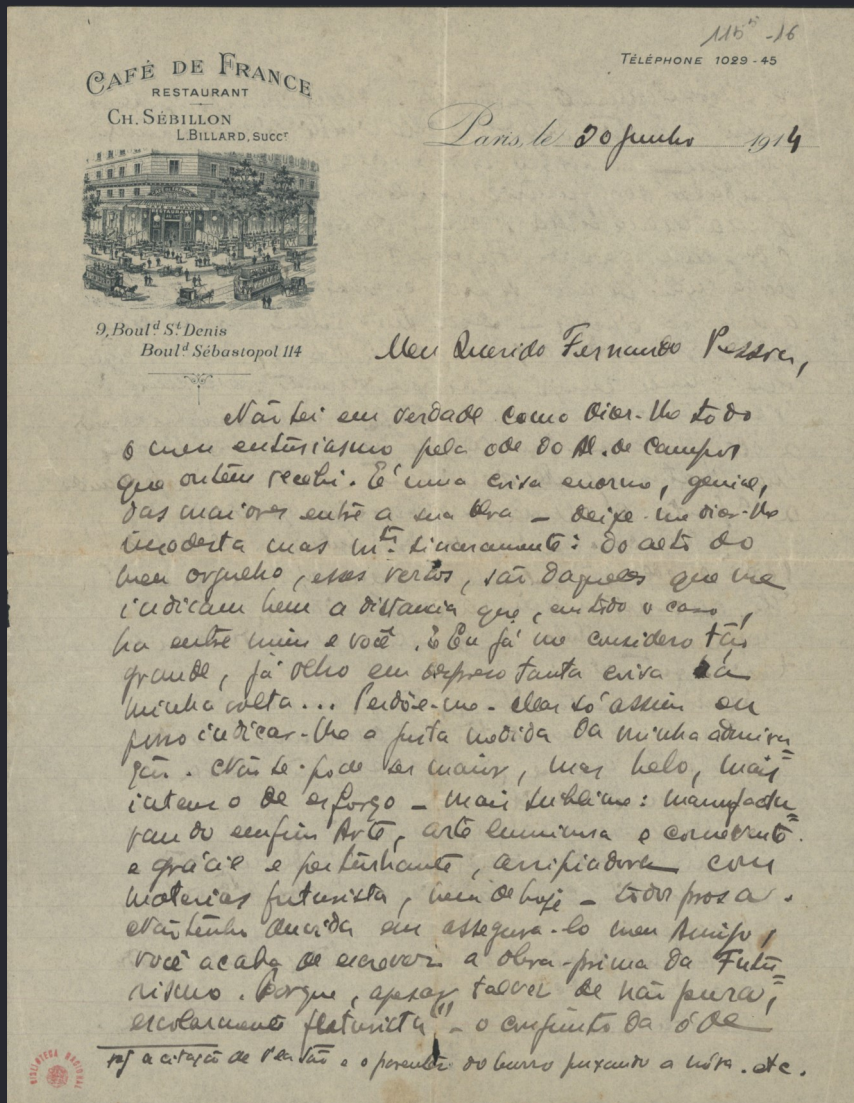 115⁵-16
TÉLÉPHONE 1029-45
CAFÉ DE FRANCE
RESTAURANT
CH. SÉBILLON
L. BILLARD, SUCCʳ
Paris, le 20 Junho 1914
9, Boulᵈ Sᵗ Denis
Boulᵈ Sébastopol 114
Meu Querido Fernando Pessoa,
Não sei em verdade como dizer-lhe todo
o meu entusiasmo pela ode do Al. de Campos
que ontem recebi. É uma coisa enorme, genial,
das maiores entre a sua obra — deixe-me dizer-lhe
imodesta mas mtº sinceramente: do alto do
meu orgulho, esses versos, são daqueles que me
indicam bem a distancia que, em todo o caso,
ha entre mim e você. E Eu já me considero tão
grande, já olho em desprezo tanta coisa á
minha volta... Perdôe-me. Mas só assim eu
posso indicar-lhe a justa medida da minha admira=
ção. Não se pode ser maior, mais belo, mais
intenso de esforço — mais sublime: manufactu=
rando emfim Arte, arte luminosa e comovente
e grácil e perturbante, arripiadora com
materias futurista, bem de hoje — todos prosa.
Não tenho duvida em assegura-lo meu Amigo,
você acaba de escrever a obra-prima do Futu=
rismo. Porque, apesar talvez de não pura,
escolarmente futurista — o conjunto da óde
a citação de Platão e o parentesis do burro puxando á nóra. etc.
BIBLIOTECA NACIONAL